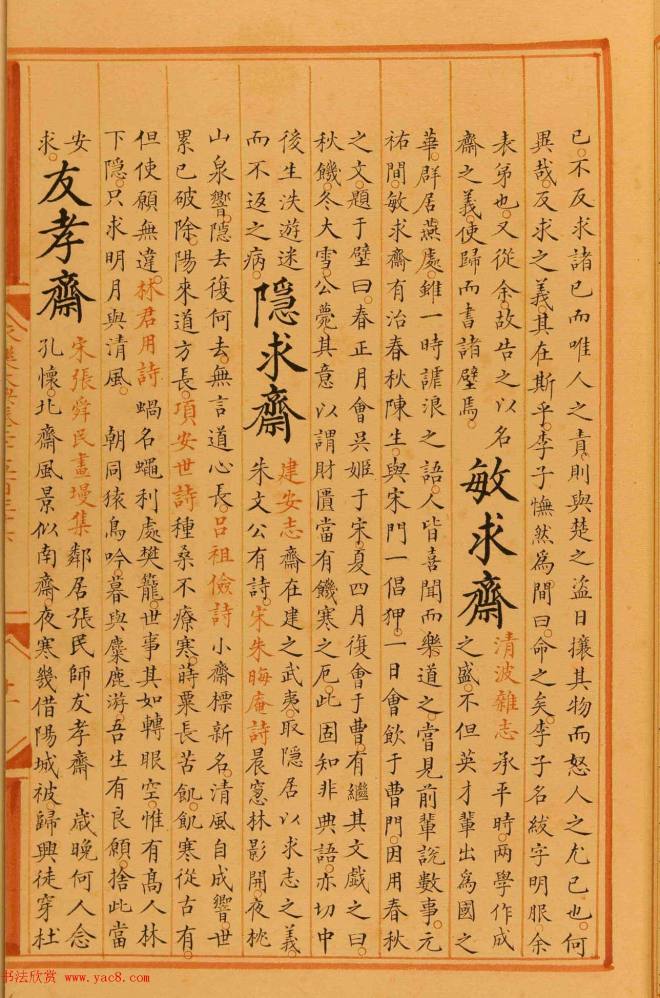 已。不反求諸已而唯人之責。則與楚之盜日攘其物而怒人之尤已也。何
異哉。反求之義。其在斯乎。李子憮然為間曰。命之矣。李子名紱字明服。余
表弟也。又從余。故告之以名
齋之義。使歸而書諸壁焉。
敏求齋
清波雜志 承平時。兩學作成
之盛。不但英才輩出為國之
華。群居燕處。雖一時謔浪之語。人皆喜聞而樂道之。嘗見前輩說數事。元
祐間。敏求齋有治春秋陳生。與宋門一倡狎。一日會飲于曹門。因用春秋
之文。題于壁曰。春正月會吳姬于宋。夏四月復會于曹。有繼其文戲之曰。
秋饑。冬大雪。公薨。其意以謂財匱當有饑寒之厄。此固知非典語。亦切中
後生泆遊迷
而不返之病。
隱求齋
建安志 齋在建之武夷。取隱居以求志之義
朱文公有詩。宋朱晦庵詩 晨窻林影開。夜枕
山泉響。隱去復何去。無言道心長。呂祖儉詩 小齋標新名。清風自成響。世
累已破除。陽來道方長。項安世詩 種桑不療寒。蒔粟長苦飢。飢寒從古有。
但使願無違。林君用詩 蝸名蠅利處樊籠。世事其如轉眼空。惟有高人林
下隱。只求明月與清風。 朝同猿鳥吟。暮與麋鹿游。吾生有良願。捨此當
安
求。
友孝齋
宋張舜民畫墁集 鄰居張民師友孝齋 歲晚何人念
孔懷。北齋風景似南齋。夜寒幾借陽城被。歸興徒穿杜
书法欣赏 www.yac8.com